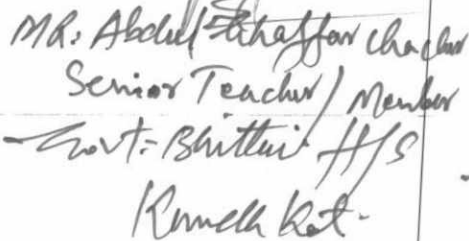 MR: Abdul Ghaffar Chachar
Senior Teacher / Member
Govt: Bhittai H/S
Kot.